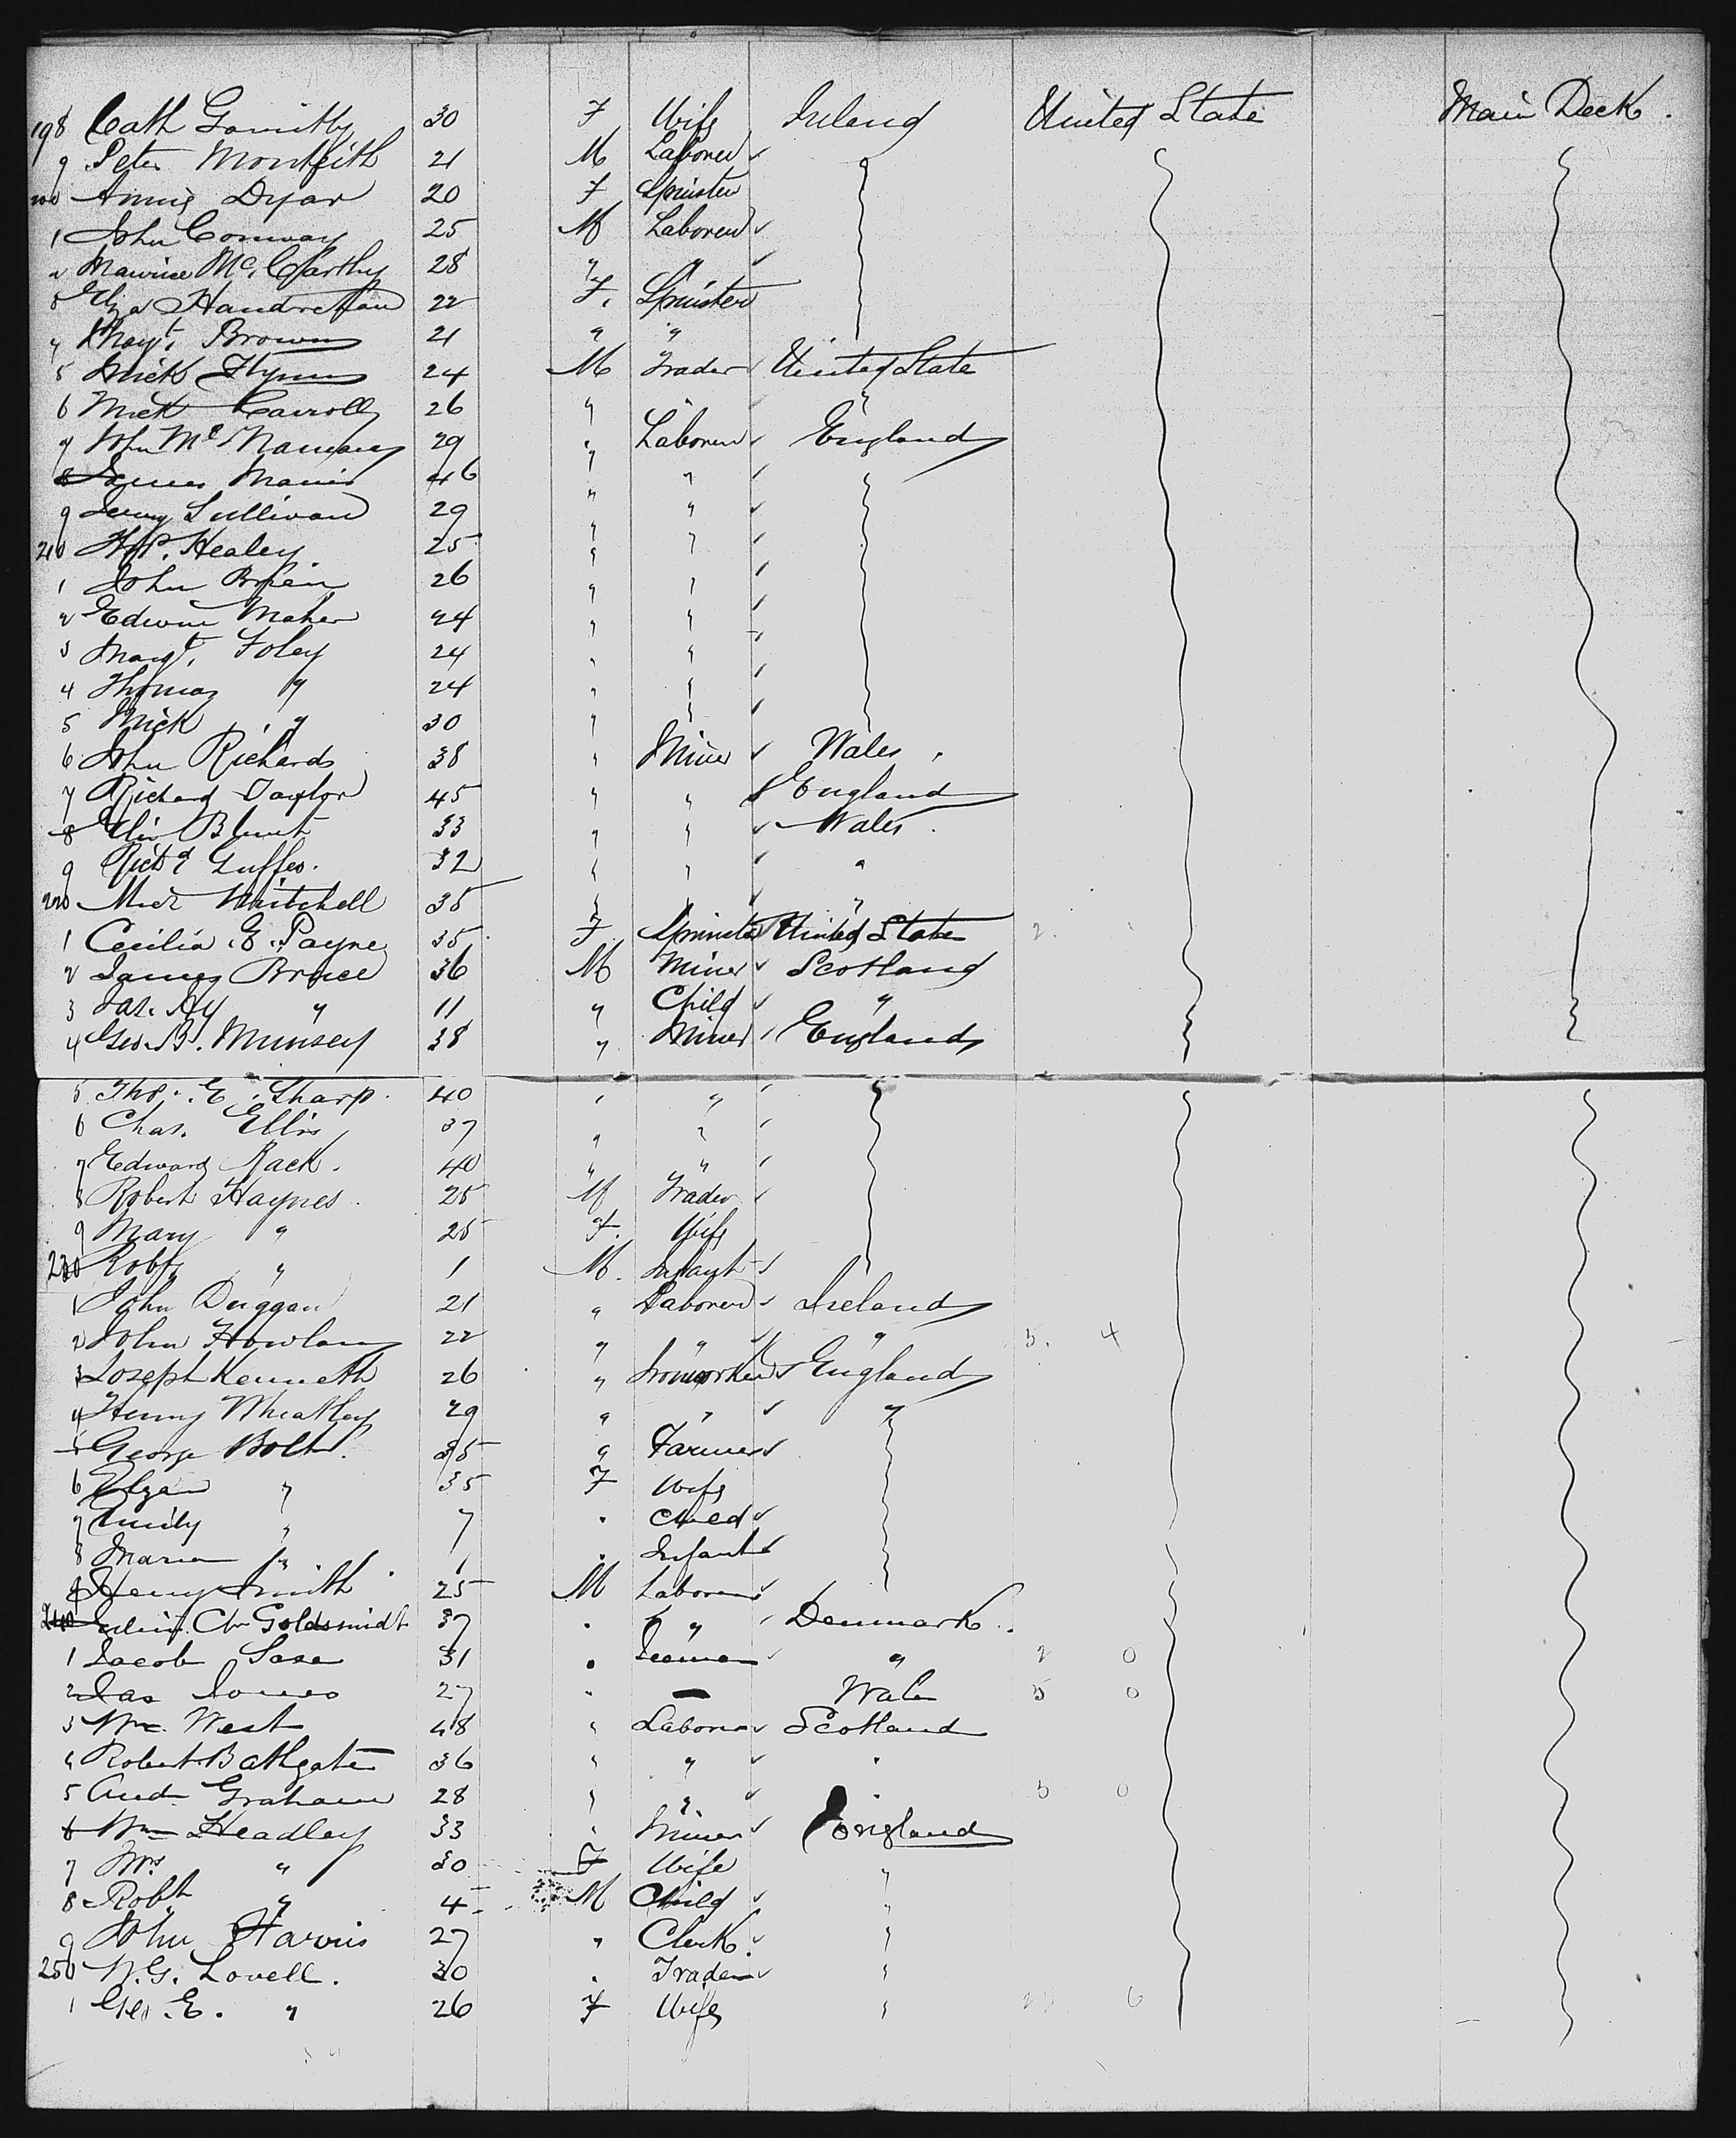 198 Cath 30 F Wife Ireland United State Main Deck.
9 Peter Monteith 21 M Laborer
200 Annie Dyar 20 F Spinster
1 John Conway 25 M Laborer
2 Maurice Mc. Carthy 28 " "
3 Eliza 22 F. Spinster
4 Magt. Brown 21 " "
5 Mick Flynn 24 M Trader United State
6 Mick Carroll 26 " " "
7 John Mc Namara 29 " Laborer England
8 James 46 " "
9 Jerry Sullivan 29 " "
210 Healey 25 " "
1 John Brien 26 " "
2 Edwin Maher 24 " "
3 Margt. Foley 24 " "
4 Thomas " 24 " "
5 Mick " 30 "
6 John Richards 38 " Miner Wales
7 Richard Taylor 45 " " England
8 Blunt 33 " " Wales.
9 Richd 32 " " "
220 Mitchell 35 " " "
1 Cecilia. E. Payne 35 F Spinster United State 2.
2 James Bruce 36 M Miner Scotland
3 Jas. Hy " 11 " Child "
4 Geo. B. Munsey 38 " Miner England
5 Thos. E. Sharp. 40 " "
6 Chas. Ellis 37 " "
7 Edward Rack. 40 " "
8 Robert Haynes. 25 M Trader
9 Mary " 25 F. Wife
230 Robt " 1 M. Infant
1 John Duggan 21 " Laborer Ireland
2 John Howlan 22 " " " 5. 4
3 Joseph Kenneth 26 " Ironworker England
4 Henry Wheatley 29 " " "
5 George Bolt 35 " Farmer
6 Elizan " 35 F Wife
7 Emily " 7 " Child
8 Maria " 1 " Infant
9 Henry Smith 25 M Laborer
240 Chr Goldsmidt 37 " " Denmark.
1 Jacob Sase 31 " Seaman " 2 0
2 Jas Jones 27 " — Wales 5 0
3 Wm. West 48 " Laborer Scotland
4 Robert Bathgate 36 " " "
5 Andr Graham 28 " " 5 0
6 Wm Headley 33 " Miner England
7 Mrs. " 30 F Wife "
8 Robt " 4 M Child "
9 John Harris 27 " Clerk. "
250 W. G. Lovell. 30 " Trader "
1 Geo. E. " 26 F Wife " 6